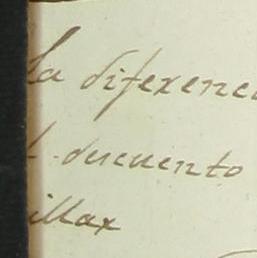 la diferenci
l descuento
illar